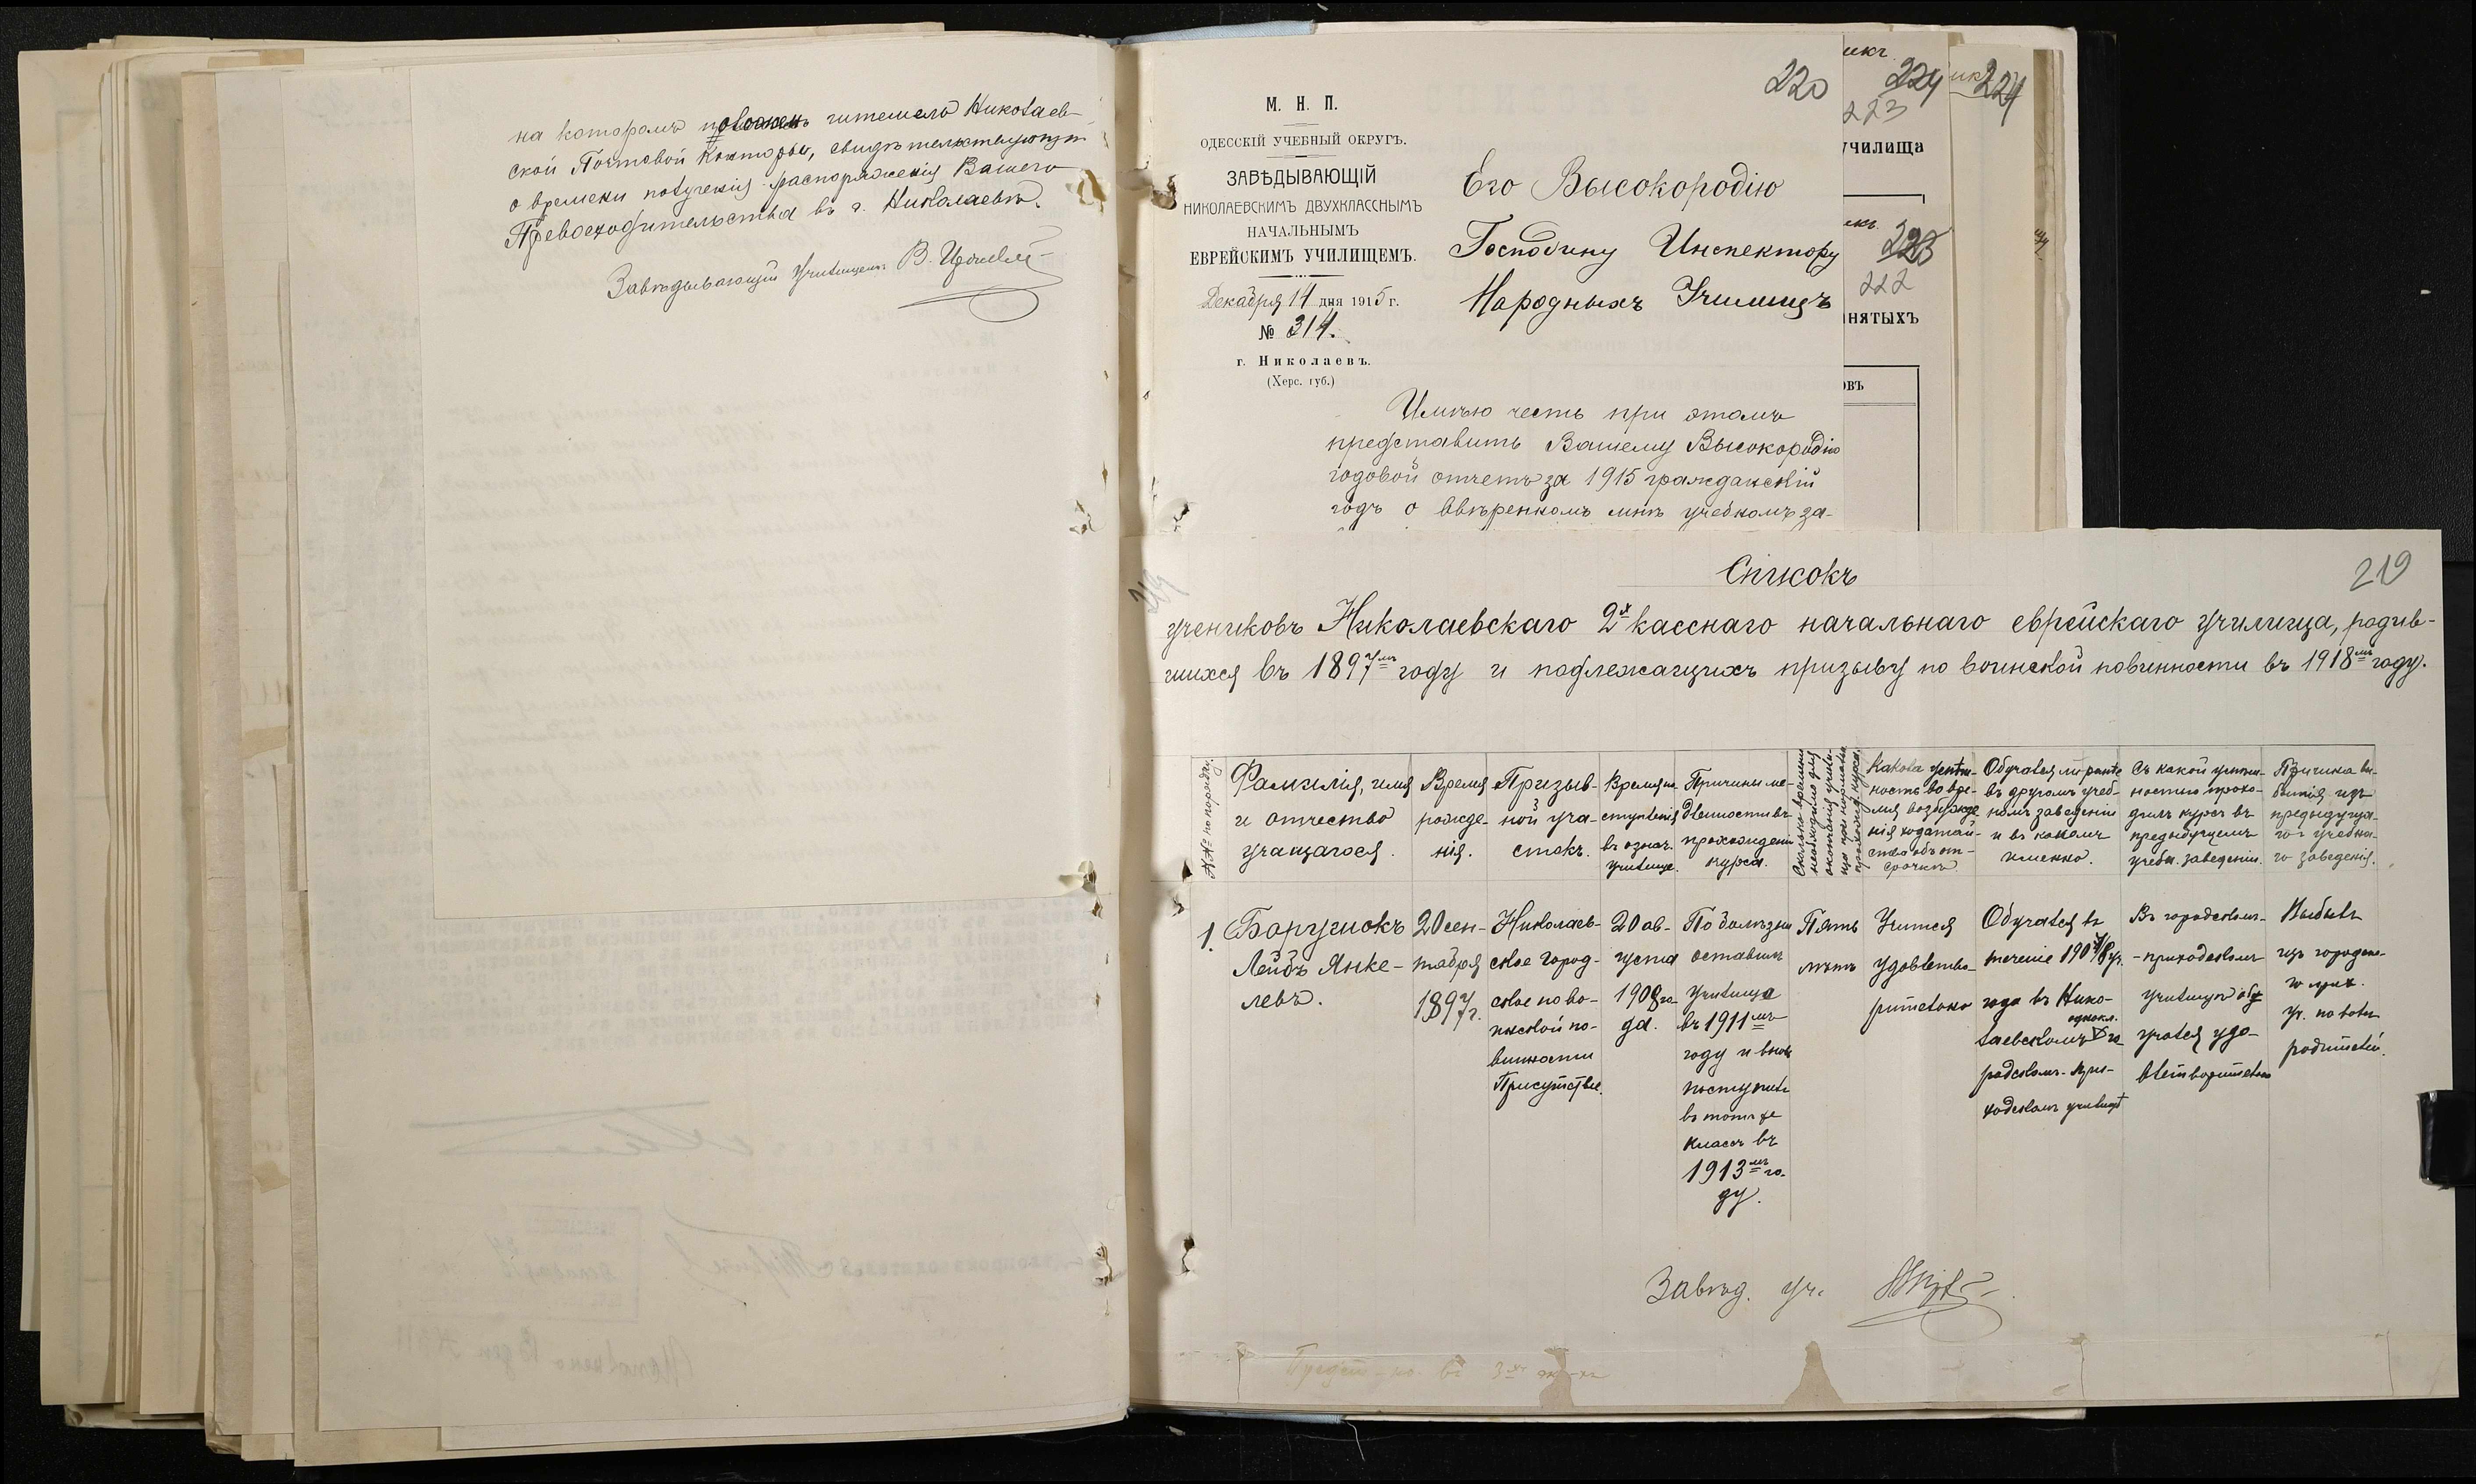 на которомъ положенъ штемпель Николаев-
ской Почтовой Конторы, свидѣтельствующій
о времени полученія распоряженія Вашего
Превосходительства въ г. Николаевѣ.
Завѣдывающій Училищемъ В.
220
М. Н. П.
ОДЕССКІЙ УЧЕБНЫЙ ОКРУГЪ.
ЗАВѢДЫВАЮЩІЙ
НИКОЛАЕВСКИМЪ ДВУХКЛАССНЫМЪ
НАЧАЛЬНЫМЪ
ЕВРЕЙСКИМЪ УЧИЛИЩЕМЪ.
Декабря 14 дня 1915 г.
№ 314.
г. Николаевъ.
(Херс. губ.)
Его Высокородію
Господину Инспектору
Народныхъ Училищъ
Имѣю честь при этомъ
представить Вашему Высокородію
годовой отчетъ за 1915 гражданскій
годъ о ввѣренномъ мнѣ учебномъ за-
икъ
224
223
училища
икъ.
223
222
нятыхъ
овъ
икъ
224
Списокъ
219
учениковъ Николаевскаго 2х касснаго начальнаго еврейскаго училища, родив-
шихся въ 1897мъ году и подлежащихъ призыву по воинской повинности въ 1918мъ году.
№№ по порядку.
Фамилія, имя
и отчество
учащагося.
Время
рожде-
нія.
Призыв-
ной уча-
стокъ.
Время по-
ступленія
въ означ.
училище.
Причины ме-
дленности въ
прохожденіи
курса.
Сколько времени
необходимо для
окончанія учили-
ща при нормальн.
прохожд. курса.
Какова успѣш-
ность во вре-
мя возбужде-
нія ходатай-
ства объ от-
срочкѣ
Обучался ли ранѣе
въ другомъ учеб-
номъ заведеніи
и въ какомъ
именно.
Съ какой успѣш-
ностью прохо-
дилъ курсъ въ
предыдущемъ
учебн. заведеніи.
Причина вы-
бытія изъ
предыдуща-
го учебна-
го заведенія.
1.
Боругиокъ
Лейбъ Янке-
левъ.
20 сен-
тября
1897 г.
Николаев-
ское город-
ское по во-
инской по-
винности
Присутствіе.
20 ав-
густа
1908 го-
да.
По болѣзни
оставилъ
училище
въ 1911мъ
году и вновь
поступилъ
въ тотъ же
классъ въ
1913мъ го-
ду.
Пять
лѣтъ
Учится
удовлетво-
рительно
Обучался въ
теченіе 1907/8 уч.
года въ Нико-
однокл.
лаевскомъ V го-
родскомъ при-
ходскомъ училищѣ
Въ городскомъ-
-приходскомъ
училищѣ обу-
чался удо-
влетворительно
Выбылъ
изъ городско-
го прих.
уч. по волѣ
родителей.
Завѣд. уч.